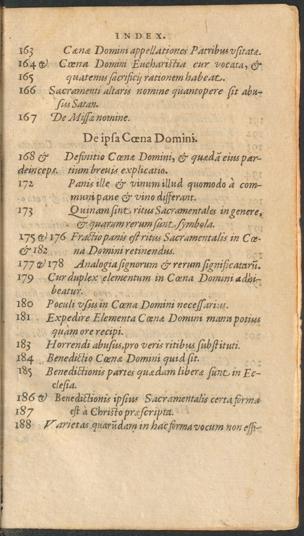 INDEX.
163 Cœnæ Domini appellationes Patribus vsitatæ.
164 & Cœna Domini Eucharistia cur vocata, &
165 quatenus sacrificij rationem habeat.
166 Sacramenti altaris nomine quantopere sit abu-
sus Satan.
167 De Missæ nomine.
De ipsa Cœna Domini.
168 & Definitio Cœnæ Domini, & quædā eius par-
deinceps. tium breuis explicatio.
172 Panis ille & vinum illud quomodo à com-
muni pane & vino differant.
173 Quinam sint ritus Sacramentales in genere,
& quarum rerum sint symbola.
175 & 176 Fractio panis est ritus Sacramentalis in Cœ-
& 182 na Domini retinendus.
177 & 178 Analogia signorum & rerum significatarū.
179 Cur duplex elementum in Cœna Domini adhi-
beatur.
180 Poculi vsus in Cœna Domini necessarius.
181 Expedire Elementa Cœnæ Domini manu potius
quàm ore recipi.
183 Horrendi abusus, pro veris ritibus substituti.
184 Benedictio Cœnæ Domini quid sit.
185 Benedictionis partes quædam liberæ sunt in Ec-
clesia.
186 & Benedictionis ipsius Sacramentalis certa forma
187 est à Christo præscripta.
188 Varietas quarūdam in hac forma vocum non effi-